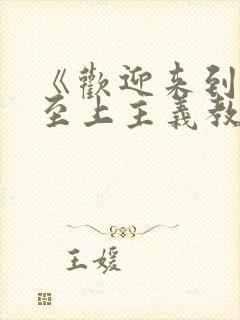 《歡迎来到
至上主義教
王媛